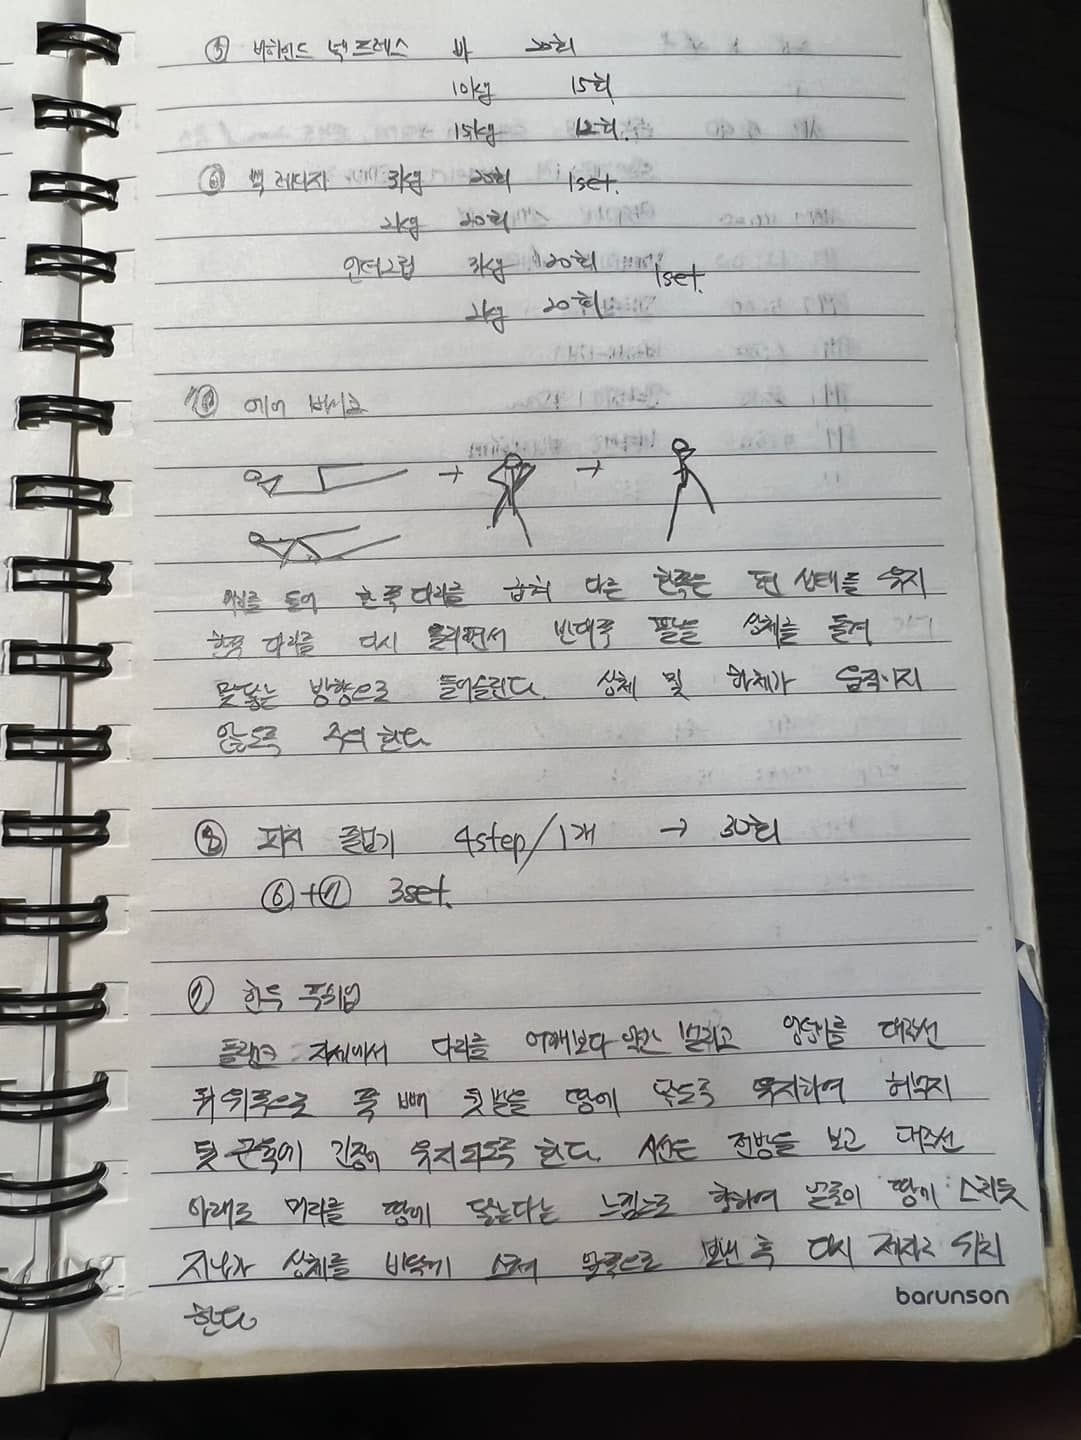 ⑤ 비하인드 넥 프레스 바 20회
10kg 15회
15kg 12회.
⑥ 백 레터지 3kg 20회 1set.
2kg 20회
언더그립 3kg 20회 1set.
2kg 20회
⑦ 에어 바이크
→ →
들어 한쪽 다리를 굽혀 다른 한쪽은 편 상태를 유지
한쪽 다리를 다시 올리면서 반대쪽 팔을 상체를 돌려
맞닿는 방향으로 들어올린다. 상체 및 하체가 움직이지
않도록 주의 한다
⑧ 피치 줍기 4step/1개 → 30회
⑥+⑦ 3set.
① 힌두 푸쉬업
플랭크 자세에서 다리를 어깨보다 약간 벌리고 엉덩이를 대각선
뒤 위쪽으로 쭉 빼 뒷발을 땅에 닿도록 유지하여 허벅지
뒷 근육에 긴장이 유지되도록 한다. 시선은 전방을 보고 대각선
아래로 머리를 땅에 닿는다는 느낌으로 향하여 얼굴이 땅에 스치듯
지나가 상체를 바닥에 스쳐 앞쪽으로 보낸 후 다시 제자리 위치
한다
barunson